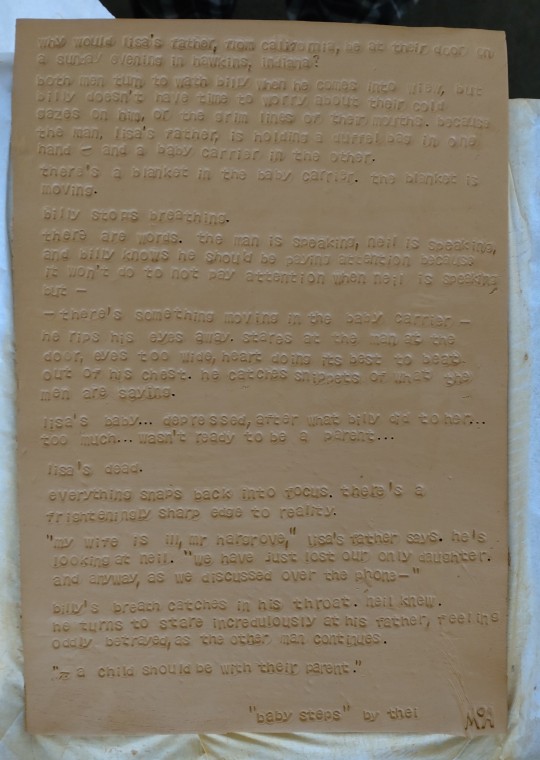 why would lisa's father, from california, be at their door on
a sunday evening in hawkins, indiana?
both men turn to wath billy when he comes into view, but
billy doesn't have time to worry about their cold
gazes on him, or the grim lines of their mouths. because
the man, lisa's father, is holding a duffel bag in one
hand – and a baby carrier in the other.
there's a blanket in the baby carrier. the blanket is
moving.
billy stops breathing.
there are words. the man is speaking, neil is speaking,
and billy knows he should be paying attention because
it won't do to not pay attention when neil is speaking,
but –
– there's something moving in the baby carrier –
he rips his eyes away. stares at the man at the
door, eyes too wide, heart doing its best to beat
out of his chest. he catches snippets of what the
men are saying.
lisa's baby... depressed, after what billy did to her...
too much... wasn't ready to be a parent...
lisa's dead.
everything snaps back into focus. there's a
frighteningly sharp edge to reality.
"my wife is ill, mr hargrove," lisa's father says. he's
looking at neil. "we have just lost our only daughter.
and anyway, as we discussed over the phone—"
billy's breath catches in his throat. neil knew.
he turns to stare incredulously at his father, feeling
oddly betrayed, as the other man continues.
"a child should be with their parent."
"baby steps" by thei